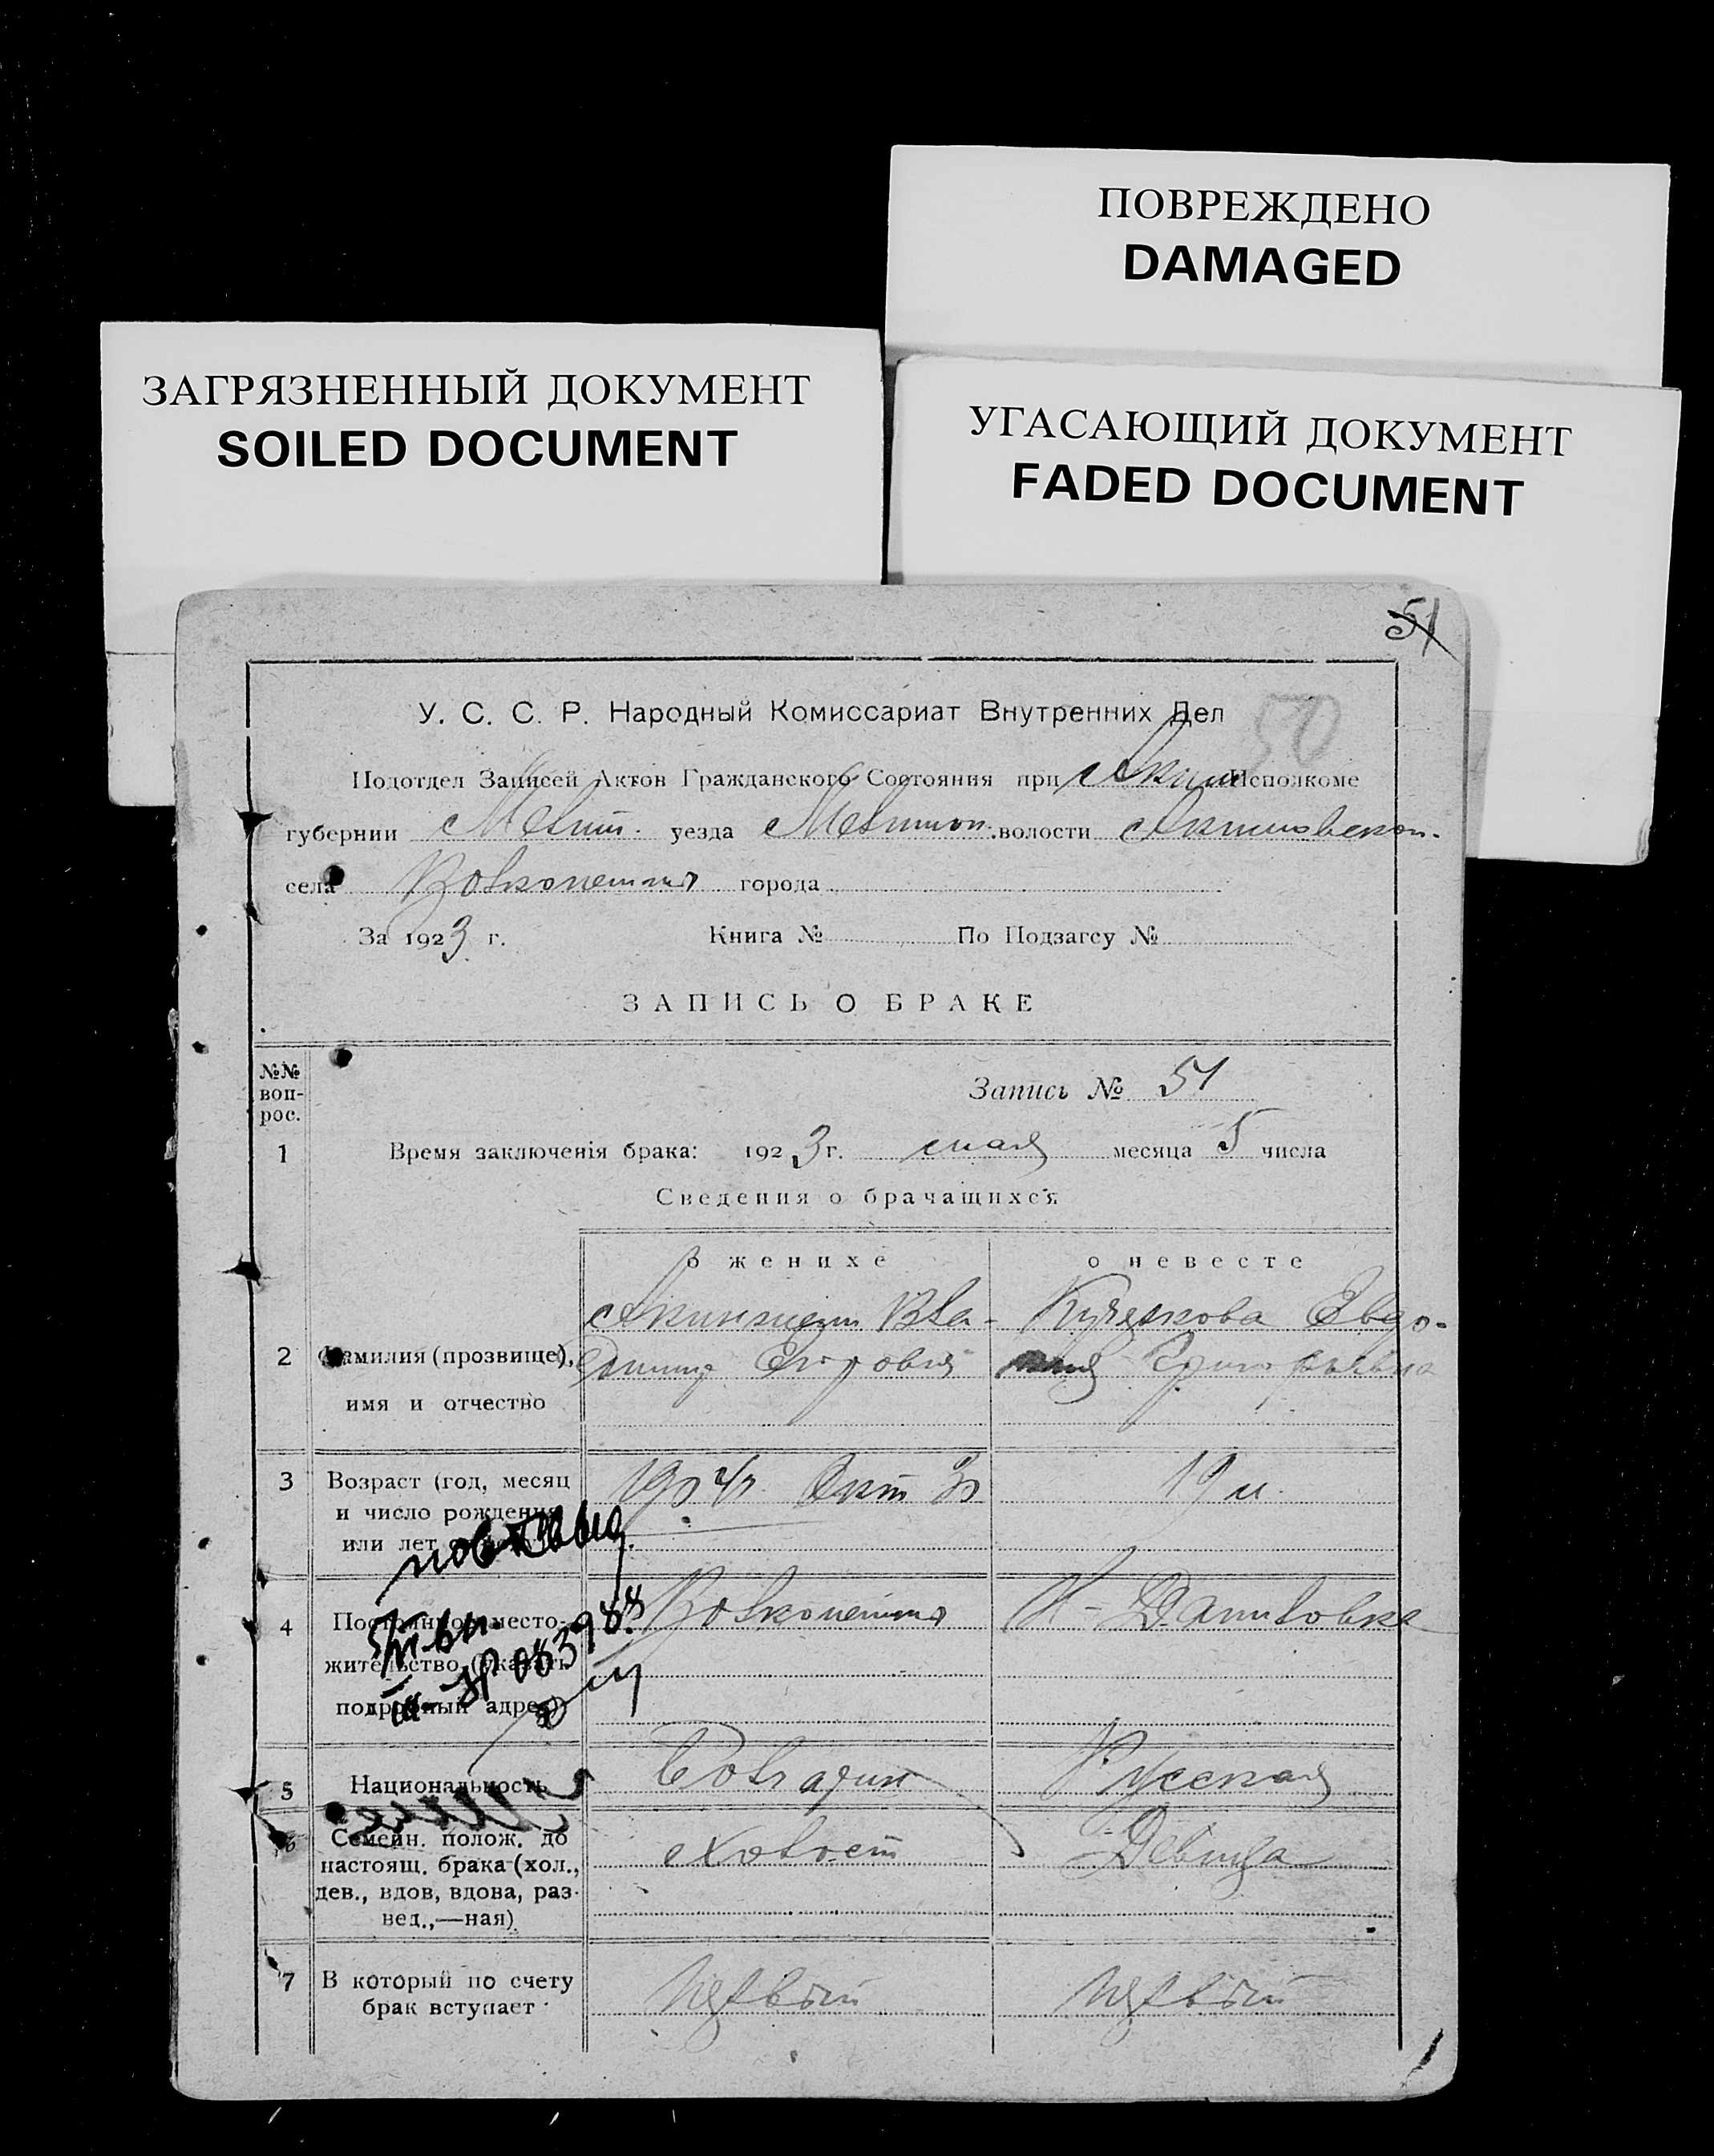 ПОВРЕЖДЕНО
DAMAGED
ЗАГРЯЗНЕННЫЙ ДОКУМЕНТ
SOILED DOCUMENT
УГАСАЮЩИЙ ДОКУМЕНТ
FADED DOCUMENT
51
50
У. С. С. Р. Народный Комиссариат Внутренних Дел
Подотдел Записей Актов Гражданского Состояния при Аким Исполкоме
губернии Мелит. уезда Мелитоп. волости Акимовской.
села Волконешты города
За 1923 г. Книга № По Подзагсу №
ЗАПИСЬ О БРАКЕ
№№ воп-рос.
Запись № 51
1 Время заключенія брака: 1923 г. мая месяца 5 числа
Сведения о брачащихся
о женихе о невесте
2 Фамилия (прозвище),
имя и отчество
Вла-
Егоров
Евдо-
Григорьевна
3 Возраст (год, месяц
и число рождения
или лет
Окт
19 л.
4 Постоянное место-
жительство (указать
подробный адрес)
Волконешты
Н-Даниловка
5 Национальность
Болгарин
Русская
6 Семейн. полож. до
настоящ. брака (хол.,
дев., вдов, вдова, раз-
вед.,—ная)
Холост
Девица
7 В который по счету
брак вступает
Первый
Первый